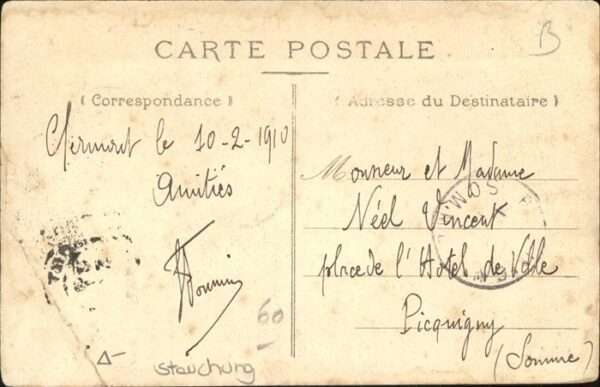 B
CARTE POSTALE
( Correspondance )
( Adresse du Destinataire )
Clermont le 10-2-1910
Amitiés
60
stauchung
Monsieur et Madame
Néel Vincent
place de l'Hotel de Ville
Picquigny
(Somme)